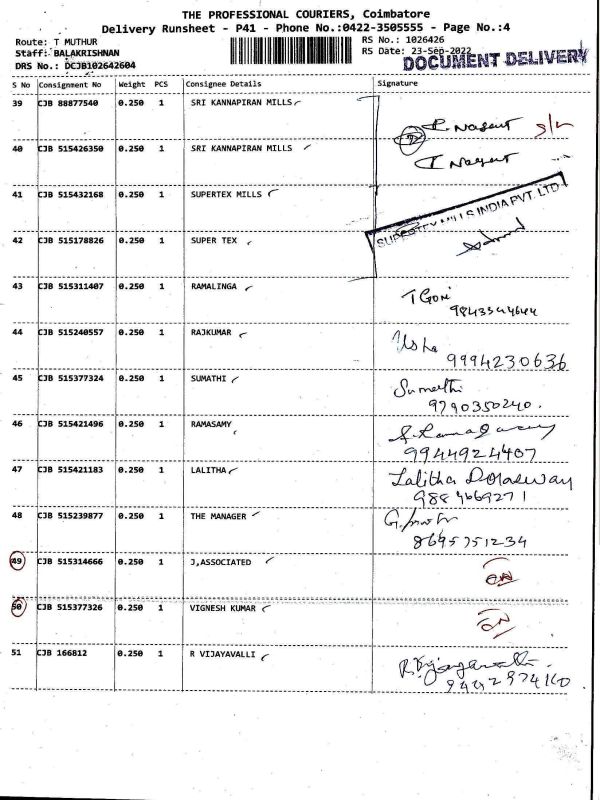 THE PROFESSIONAL COURIERS, Coimbatore
Delivery Runsheet - P41 - Phone No.:0422-3505555 - Page No.:4
Route: T MUTHUR
RS No.: 1026426
Staff: BALAKRISHNAN
RS Date: 23-Sep-2022
DRS No.: DCJB102642604
DOCUMENT DELIVERY
S No Consignment No Weight PCS Consignee Details Signature
39 CJB 88877540 0.250 1 SRI KANNAPIRAN MILLS
40 CJB 515426350 0.250 1 SRI KANNAPIRAN MILLS
41 CJB 515432168 0.250 1 SUPERTEX MILLS
SUPERTEX MILLS INDIA PVT. LTD
42 CJB 515178826 0.250 1 SUPER TEX
43 CJB 515311407 0.250 1 RAMALINGA
44 CJB 515240557 0.250 1 RAJKUMAR Usha
9994230636
45 CJB 515377324 0.250 1 SUMATHI Sumathi
9790350240.
46 CJB 515421496 0.250 1 RAMASAMY
9944924407
47 CJB 515421183 0.250 1 LALITHA Lalitha Doraswamy
9884669271
48 CJB 515239877 0.250 1 THE MANAGER
8695751234
49 CJB 515314666 0.250 1 J,ASSOCIATED
50 CJB 515377326 0.250 1 VIGNESH KUMAR
51 CJB 166812 0.250 1 R VIJAYAVALLI R. Vijayavalli